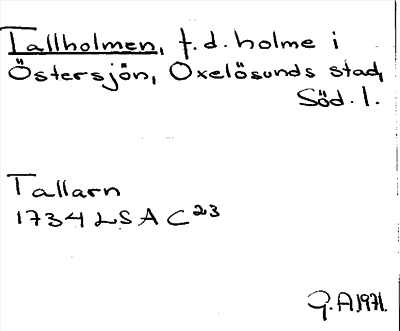 Tallholmen, f.d. holme i
Östersjön, Oxelösunds stad,
Söd. l.
Tallarn
1734 LSA C23
G.A 1971.